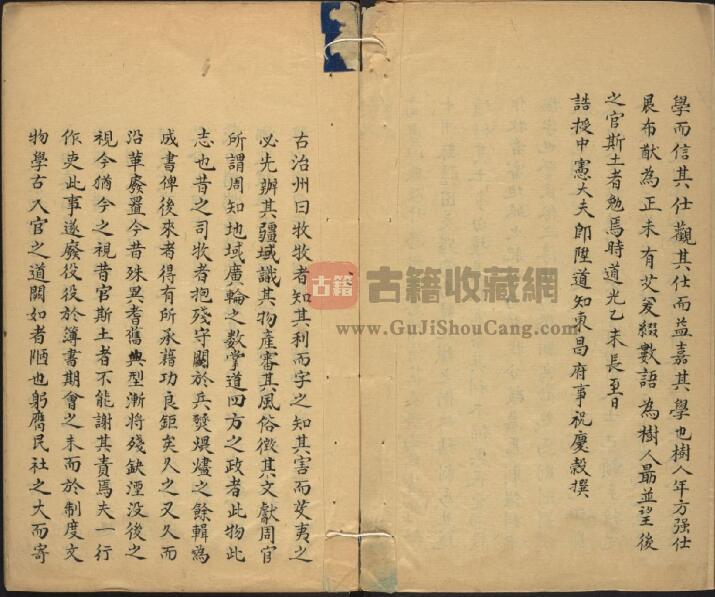 學而信其仕觀其仕而益嘉其學也樹人年方强仕
展布猷為正未有艾爰綴數語為樹人勗並望後
之官斯土者勉焉時道光乙未長至日
誥授中憲大夫即陞道知東昌府事祝慶穀撰
古治州曰牧牧者知其利而字之知其害而芟夷之
必先辦其疆域識其物產審其風俗徵其文獻周官
所謂周知地域廣輪之數掌道四方之政者此物此
志也昔之司牧者抱殘守闕於兵燹煨燼之餘輯為
成書俾後來者得有所承藉功良鉅矣久之又久而
沿革廢置今昔殊異耆舊典型漸將殘缺湮没後之
視今猶今之視昔官斯土者不能謝其責焉夫一行
作吏此事遂廢役役於簿書期會之末而於制度文
物學古入官之道闕如者陋也躬膺民社之大而寄
古籍
古籍收藏網
www.GuJiShouCang.com